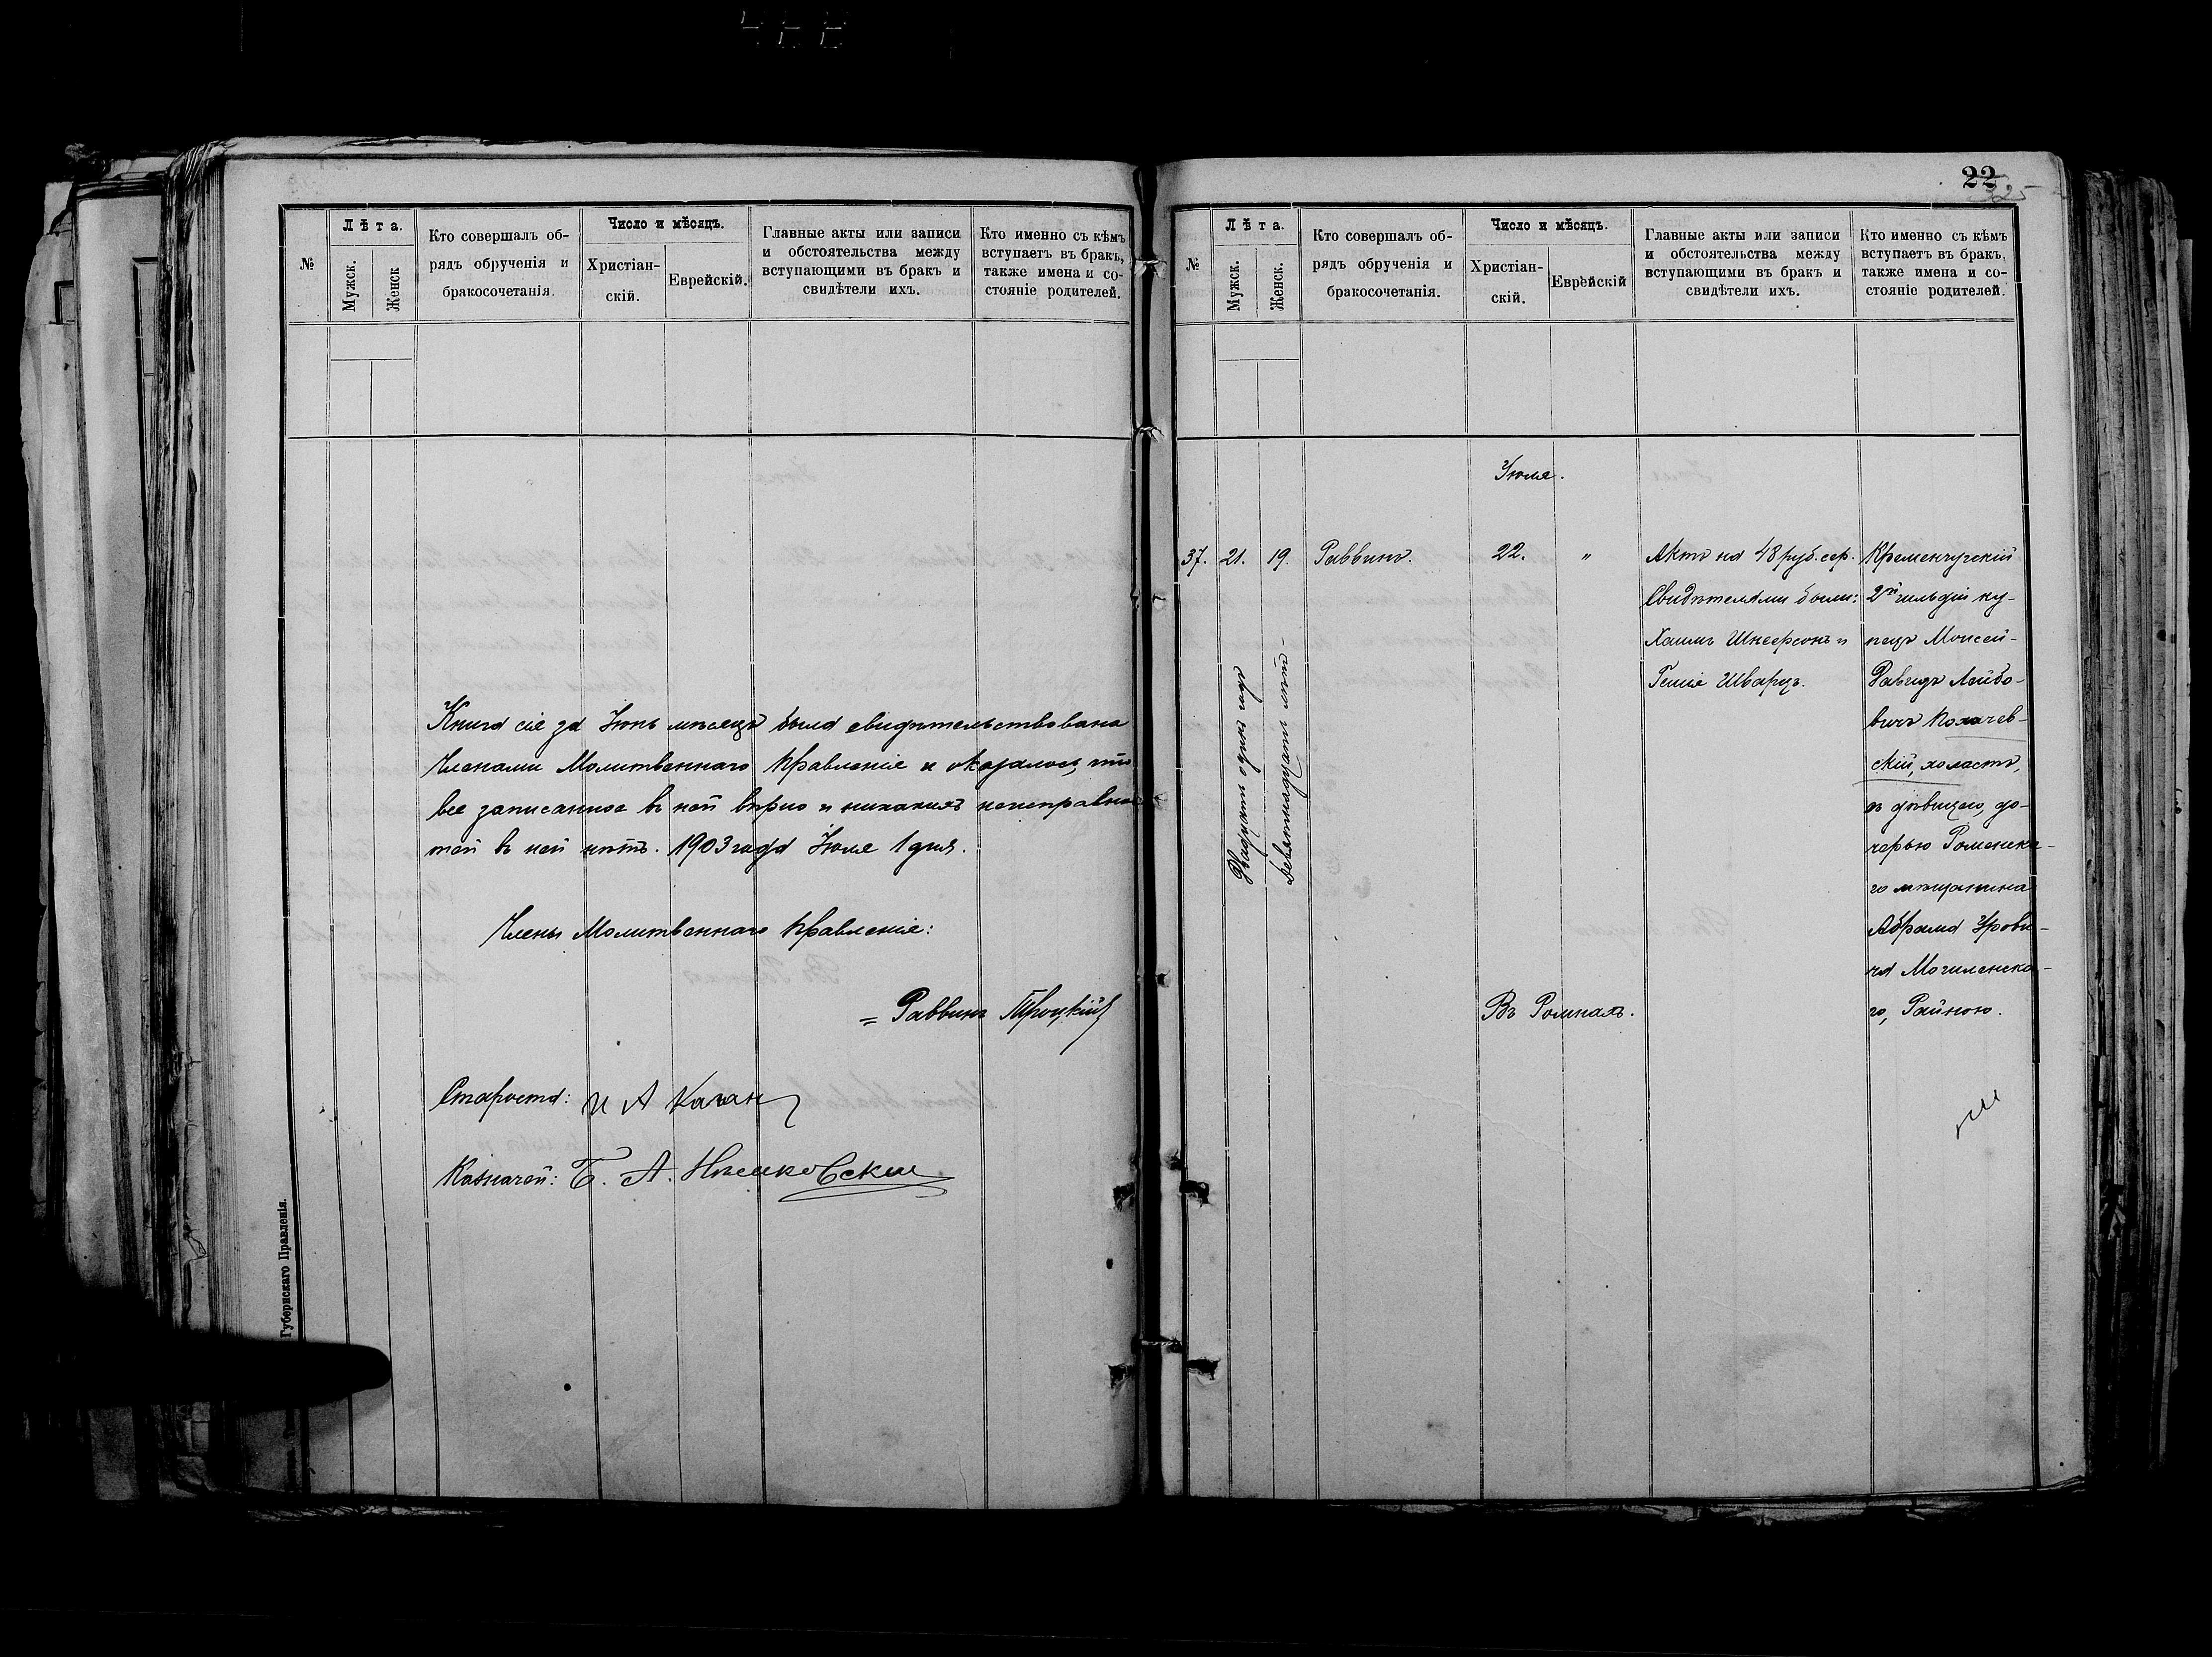 №
Лѣта.
Мужск.
Женск
Кто совершалъ об-
рядъ обрученія и
бракосочетанія.
Число и мѣсяцъ.
Христіан-
скій.
Еврейскій.
Главные акты или записи
и обстоятельства между
вступающими въ бракъ и
свидѣтели ихъ.
Кто именно съ кѣмъ
вступаетъ въ бракъ,
также имена и со-
стояніе родителей.
Книга сія за Іюнь мѣсяцъ была свидѣтельствована
Членами Молитвеннаго Правленія и оказалось, что
все записанное въ ней вѣрно и никакихъ неисправнос
тей въ ней нѣтъ. 1903 года Іюля 1 дня.
Члены Молитвеннаго Правленія:
= Раввинъ Троцкій
Староста: И А Каган
Казначей: Б. А.
Губернскаго Правленія.
22
325
№
Лѣта.
Мужск.
Женск.
Кто совершалъ об-
рядъ обрученія и
бракосочетанія.
Число и мѣсяцъ.
Христіан-
скій.
Еврейскій
Главные акты или записи
и обстоятельства между
вступающими въ бракъ и
свидѣтели ихъ.
Кто именно съ кѣмъ
вступаетъ въ бракъ,
также имена и со-
стояніе родителей.
Іюля.
37.
21.
Двадцать одинъ годъ
19.
Девятнадцать лѣтъ
Раввинъ.
22.
"
Въ Ромнахъ.
Актъ на 48 руб. сер.
Свидѣтелями были:
Хаимъ Шнеерсонъ и
Гешіе Шварцъ.
Кременчугскій
2й гильдіи ку-
пецъ Моисей-
Давидъ Лейбо-
вичъ Колачев-
скій, холостъ,
съ дѣвицею, до-
черью Роменска-
го мѣщанина
Абрама Урови-
ча Могиленска-
го, Райною.